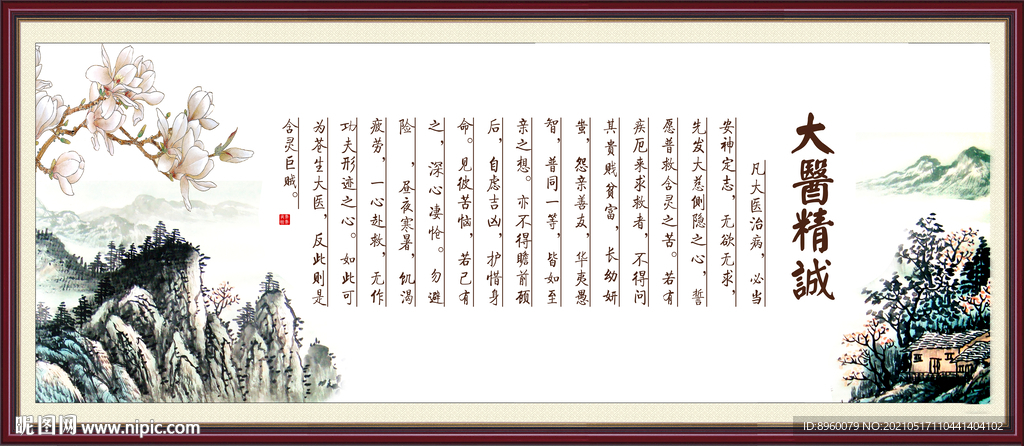 大醫精誠
凡大医治病，必当
安神定志，无欲无求，
先发大慈恻隐之心，誓
愿普救含灵之苦。若有
疾厄来求救者，不得问
其贵贱贫富，长幼妍
蚩，怨亲善友，华夷愚
智，普同一等，皆如至
亲之想。亦不得瞻前顾
后，自虑吉凶，护惜身
命。见彼苦恼，若己有
之，深心凄怆。勿避
险，昼夜寒暑，饥渴
疲劳，一心赴救，无作
功夫形迹之心。如此可
为苍生大医，反此则是
含灵巨贼。
昵图网 www.nipic.com
ID:8960079 NO:20210517110441404102